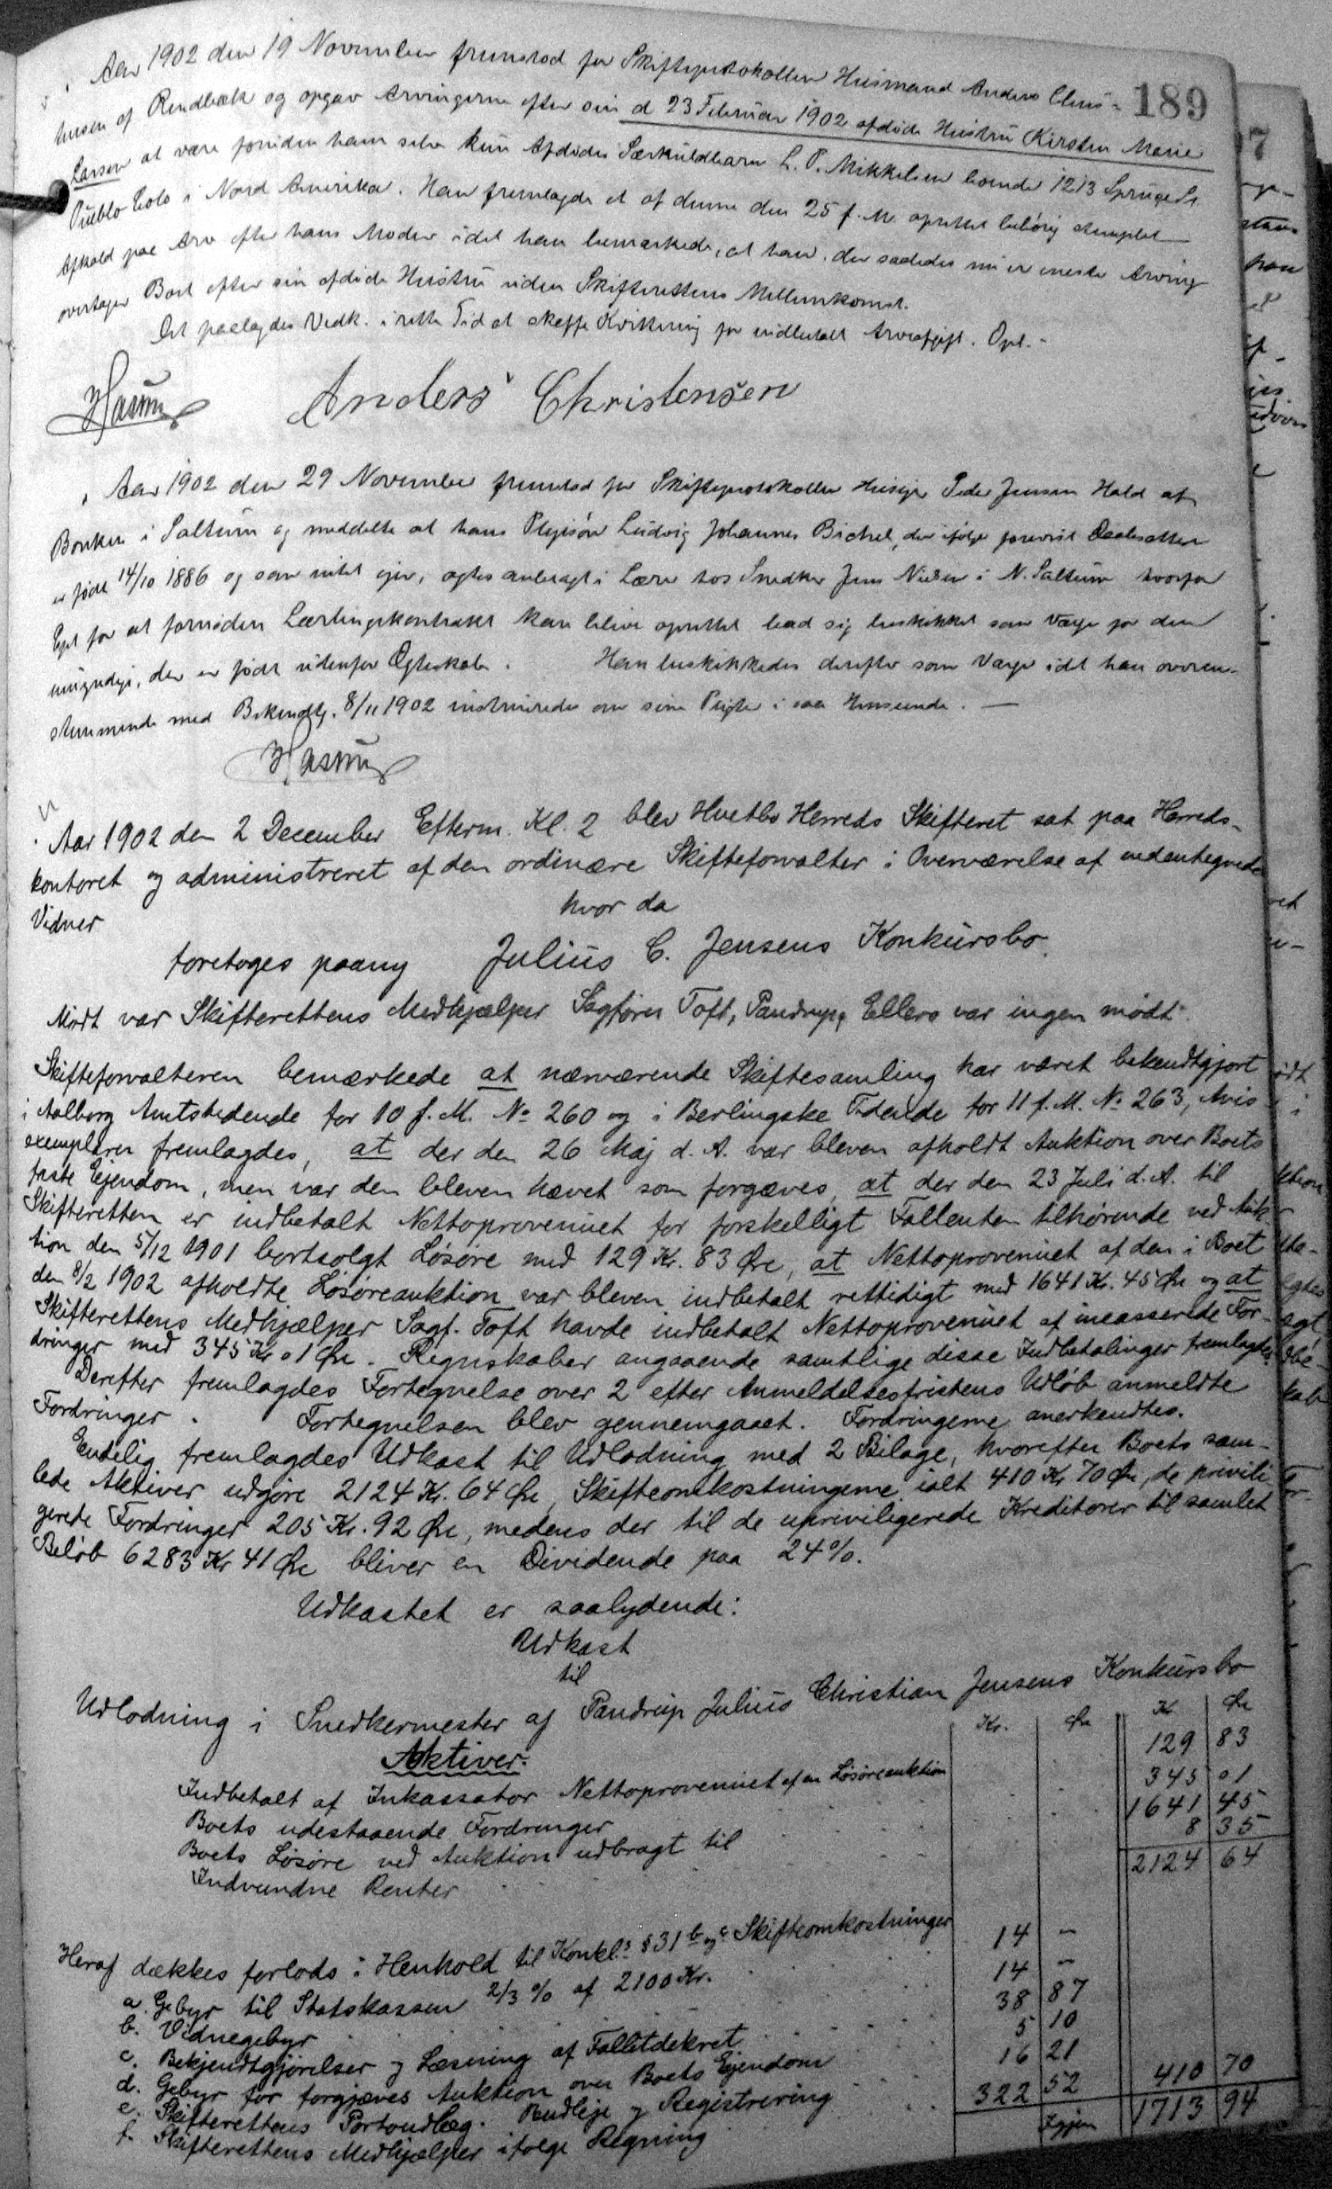 189
Aar 1902 den 19 November fremstod for Skifteprotokollen Husmand Anders Chris-
tensen af Rendbæk og opgav Arvingerne efter sin d 23 Februar 1902 afdøde Hustru Kirsten Marie
Larsen at være foruden ham selv kun Afdødes Særkuldbarn L. P. Mikkelsen boende 1213 Spruge St.
Pueblo Colo i Nord Amerika. Han fremlagde et af denne den 25 f. M. oprettet behørig stemplet
Afkald paa Arv efter hans Moder idet han bemærkede, at han, der saaledes nu er eneste Arving
overtager Boet efter sin afdøde Hustru uden Skifterettens Mellemkomst.
Det paalagdes Vedk. i rette Tid at skaffe Kvittering for indbetalt Arveafgift. Opl.-
Hasrup
Anders Christensen
Aar 1902 den 29 November fremstod for Skifteprotokollen Husejer Peder Jensen Hald af
Bonken i Saltum og meddelte at hans Plejesøn Ludvig Johannes Bichel, der ifølge forevist Daabsattest
er født 14/10 1886 og som intet ejer, agtes anbragt i Lære hos Snedker Jens Nielsen i N. Saltum hvorfor
Cpt for at fornøden Lærlingekontrakt kan blive oprettet bad sig beskikket som Værge for den
umyndige, der er født udenfor Ægteskab. Han beskikkedes derefter som Værge idet han overen-
stemmende med Bekendtg. 8/11 1902 instrueredes om sine Pligter i saa Henseende. —
Hasrup
Aar 1902 den 2 December Efterm. Kl. 2 blev Hvetbo Herreds Skifteret sat paa Herreds-
kontoret og administreret af den ordinære Skifteforvalter i Overværelse af undertegnede
Vidner
hvor da
foretoges paany Julius C. Jensens Konkursbo.
Mødt var Skifterettens Medhjælper Sagfører Toft, Pandrup, Ellers var ingen mødt.
Skifteforvalteren bemærkede at nærværende Skiftesamling har været bekendtgjort
i Aalborg Amtstidende for 10 f. M. No 260 og i Berlingske Tidende for 11 f. M. No 263, Avis-
exemplarer fremlagdes, at der den 26 Maj d. A. var bleven afholdt Auktion over Boets
faste Ejendom, men var den bleven hævet som forgæves, at der den 23 Juli d. A. til
Skifteretten er indbetalt Nettoprovenuet for forskelligt Fallenten tilhørende ved Auk-
tion den 5/12 1901 bortsolgt Løsøre med 129 Kr. 83 Øre, at Nettoprovenuet af den i Boet
den 8/2 1902 afholdte Løsøreauktion var bleven indbetalt rettidigt med 1641 Kr. 45 Øre og at
Skifterettens Medhjælper Sagf. Toft havde indbetalt Nettoprovenuet af incasserede For-
dringer med 345 Kr 01 Øre. Regnskaber angaaende samtlige disse Indbetalinger fremlagdes.
Derefter fremlagdes Fortegnelse over 2 efter Anmeldelsesfristens Udløb anmeldte
Fordringer. Fortegnelsen blev gennemgaaet. Fordringerne anerkendtes.
Endelig fremlagdes Udkast til Udlodning med 2 Bilage, hvorefter Boets sam-
lede Aktiver udgjøre 2124 Kr. 64 Øre, Skifteomkostningerne ialt 410 Kr 70 Øre, de privili-
gerede Fordringer 205 Kr. 92 Øre, medens der til de upriviligerede Kreditorer til samlet
Beløb 6283 Kr 41 Øre bliver en Dividende paa 24%.
Udkastet er saalydende:
Udkast
til
Udlodning i Snedkermester af Pandrup Julius Christian Jensens Konkursbo
Kr. Øre Kr Øre
Aktiver.
Indbetalt af Inkassator Nettoprovenuet af en Løsøreauktion 129 83
Boets udestaaende Fordringer 345 01
Boets Løsøre ved Auktion udbragt til 1641 45
Indvundne Renter 8 35
2124 64
Heraf dækkes forlods i Henhold til Konkl.s §31 b og c Skifteomkostninger
a. Gebyr til Statskassen 2/3 % af 2100 Kr. 14 –
b. Vidnegebyr 14 –
c. Bekjendtgjørelser og Læsning af Fallitdekret 38 87
d. Gebyr for forgjæves Auktion over Boets Ejendom 5 10
e. Skifterettens Portoudlæg. Budleje og Registrering 16 21
f. Skifterettens Medhjælper ifølge Regning 322 52 410 70
Igjen 1713 94